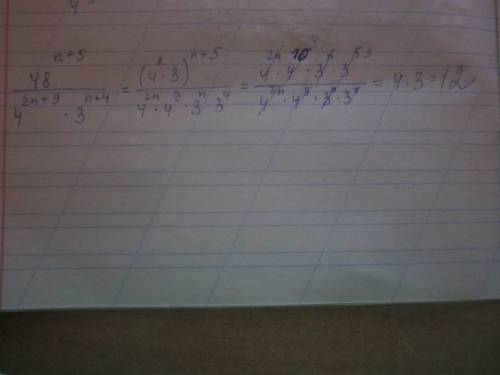 48^{n+5} / (4^{2n+9} · 3^{n+4}) = (4^2 · 3)^{n+5} / (4^{2n} · 4^9 · 3^n · 3^4) = (4^{2n} · 4^{10} · 3^n · 3^5) / (4^{2n} · 4^9 · 3^n · 3^4) = 4 · 3 = 12